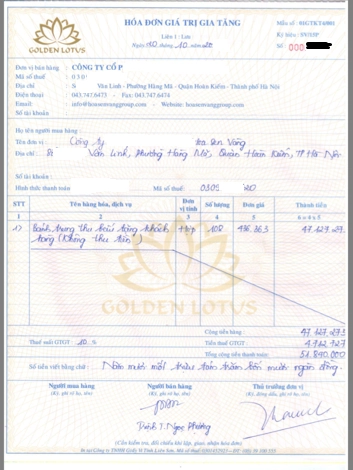 HÓA ĐƠN GIÁ TRỊ GIA TĂNG
Mẫu số: 01GTKT3/001
Liên 1: Lưu
Ký hiệu: SV/13P
Ngày 30 tháng 10 năm
Số: 000
GOLDEN LOTUS
Đơn vị bán hàng : CÔNG TY CỔ P
Mã số thuế : 030
Địa chỉ : S Văn Linh - Phường Hàng Mã - Quận Hoàn Kiếm - Thành phố Hà Nội
Điện thoại : 043.747.6473 - Fax: 043.747.6474
Email : info@hoasenvanggroup.com - Website: hoasenvanggroup.com
Số tài khoản :
Họ tên người mua hàng :
Tên đơn vị : Công ty Hoa Sen Vàng
Địa chỉ : Văn Linh, Phường Hàng Mã, Quận Hoàn Kiếm, TP Hà Nội
Số tài khoản :
Hình thức thanh toán Mã số thuế: 0305
STT Tên hàng hóa, dịch vụ Đơn vị tính Số lượng Đơn giá Thành tiền
1 2 3 4 5 6 = 4 x 5
1) Bánh trung thu biếu tặng khách hàng (Không thu tiền) Hộp 108 436.363 47.127.273
GOLDEN LOTUS
Cộng tiền hàng : 47.127.273
Thuế suất GTGT : 10 % Tiền thuế GTGT : 4.712.727
Tổng cộng tiền thanh toán: 51.840.000
Số tiền viết bằng chữ : Năm mươi mốt triệu tám trăm bốn mươi ngàn đồng.
Người mua hàng Người bán hàng Thủ trưởng đơn vị
(Ký, ghi rõ họ, tên) (Ký, ghi rõ họ, tên) (Ký, đóng dấu, ghi rõ họ, tên)
Ngọc Phương
(Cần kiểm tra, đối chiếu khi lập, giao, nhận hóa đơn)